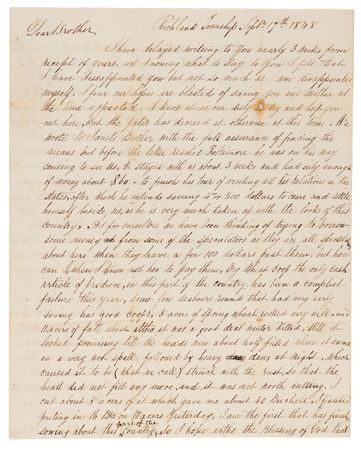 Dear Brother Richland Township Sept. 17th 1848
I have delayed writing to you nearly 3 weeks from
receipt of yours, not knowing what to say to you I felt that
I have dissappointed you but not so much as I am disappointed
myself. I fear our hopes are blasted of seing you and Mother at
the time expected. I know it is our duty to and help you
out here, but the fates has decreed it otherwise at this time. We
wrote to Brother with the full assurance of finding the
means but before the letter reached he was on his way
coming to see us. He stayed with us about 3 weeks and had only enough
of money about $60 - to finish his tour of visiting all his relation in the
States after which he intends saving 4 or 500 dollars to come and settle
himself beside us, as he is very much taken up with the looks of this
country. As for ourselves we have been thinking of trying to borrow
some money from some of the speculators as they are all
about here when they have a few 100 dollars past them, but how
can I, when I know not how to pay them. My Wheat Crop the only cash
article of produce, in this part of the country, has been a complect
failure this year, some few nabours round that had very early
sowing has good Crops. 5 acres of spring wheat looked very well, and
11 acres of fall wheat altho it was a good deal winter killed, still it
looked promising till the heads were about half filled when it came
on a very wet spell, followed by heavy dews at night. Which
caused it to be (what we call) struck with the rust, so that the
head did not fill any more, and it was not worth cutting. I
cut about 5 acres of it which gave me about 40 Buchels. I finished
puting in 16 on 10 acres Yesterday. I am the first that has finished
sowing about this part of the Country. So I hope withe the Blessing of God that